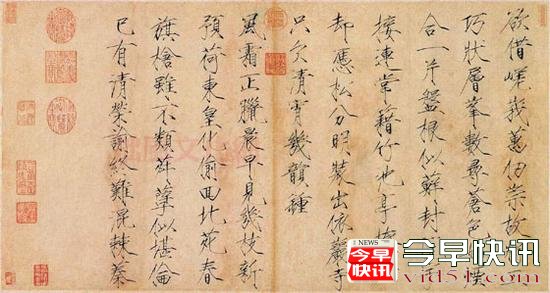 欲借嶢峩萬仞崇故
巧狀層峯數尋蒼色
合一片盤根似蘚封
接連常藉竹池亭
却憑松分明裝出依巖寺
只欠清宵幾韻鐘
風霜正臘晨早見幾枝新
預荷東皇化偷回北苑春
旗槍雖不類荈蘖似堪倫
已有清榮論終難混棘榛
NEWS
今早
快讯
今早快讯
vid51.com